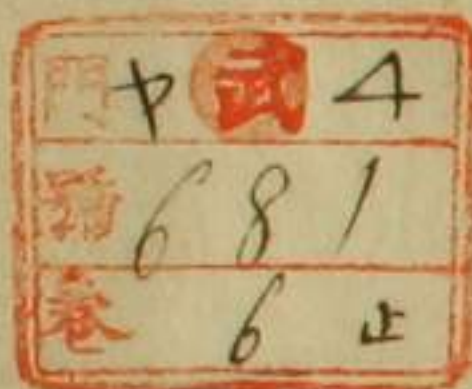 門 ヤ 武 4
號 681
卷 6 止